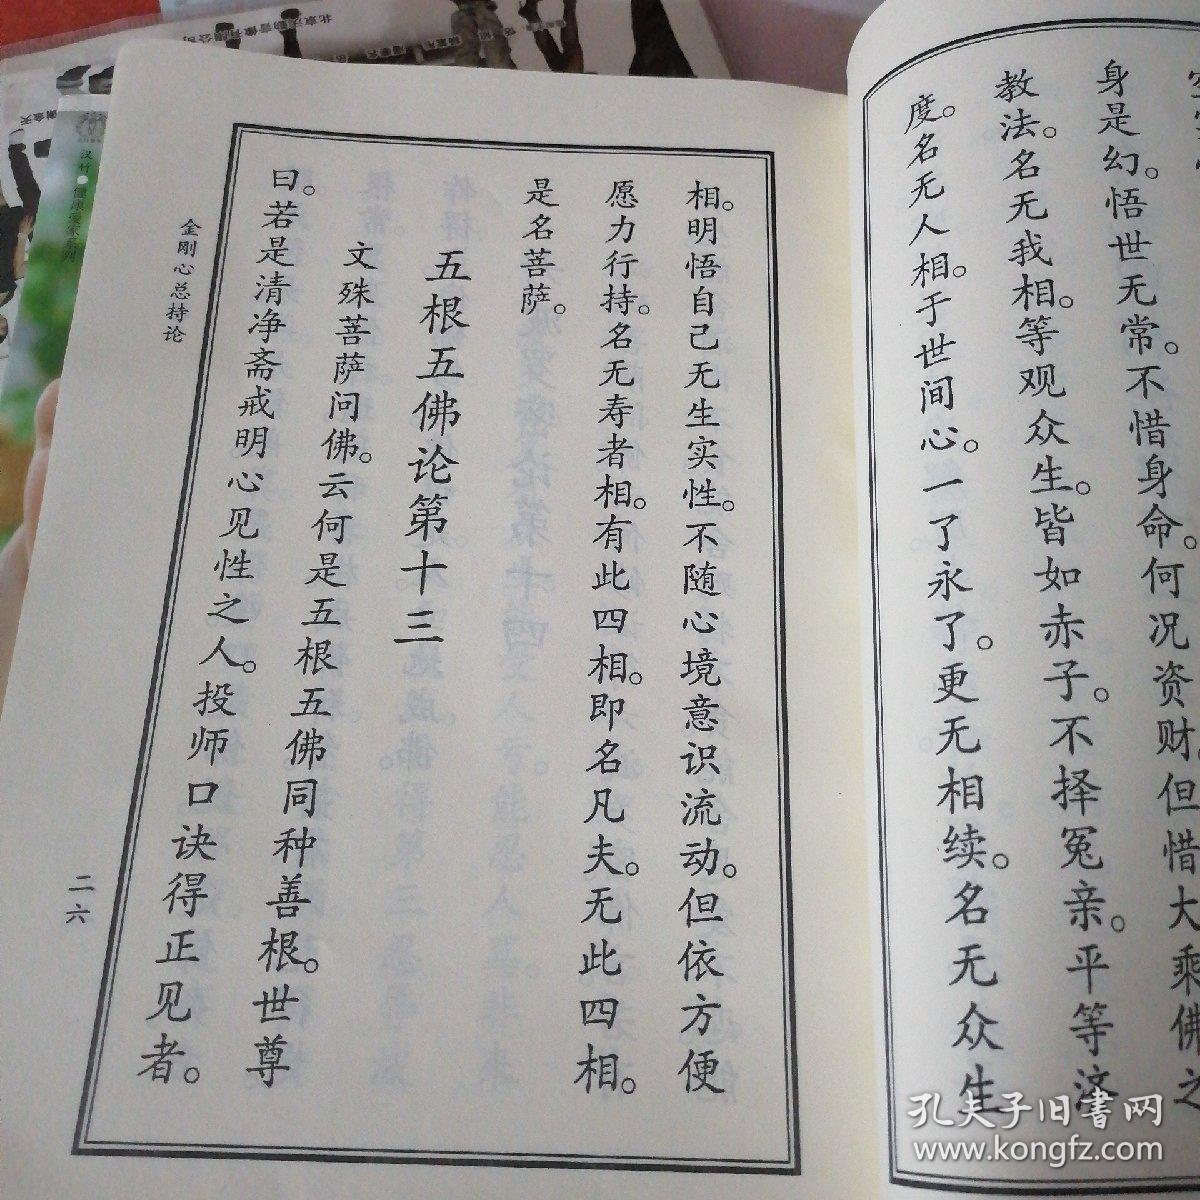 身是幻。悟世无常。不惜身命。何况资财。但惜大乘佛之
教法。名无我相。等观众生。皆如赤子。不择冤亲。平等济
度。名无人相。于世间心。一了永了。更无相续。名无众生
相。明悟自己无生实性。不随心境意识流动。但依方便
愿力行持。名无寿者相。有此四相。即名凡夫。无此四相。
是名菩萨。
五根五佛论第十三
文殊菩萨问佛。云何是五根五佛同种善根。世尊
曰。若是清净斋戒明心见性之人。投师口诀得正见者。
金刚心总持论
二六
汉竹·健康爱家系列
孔夫子旧书网
www.kongfz.com